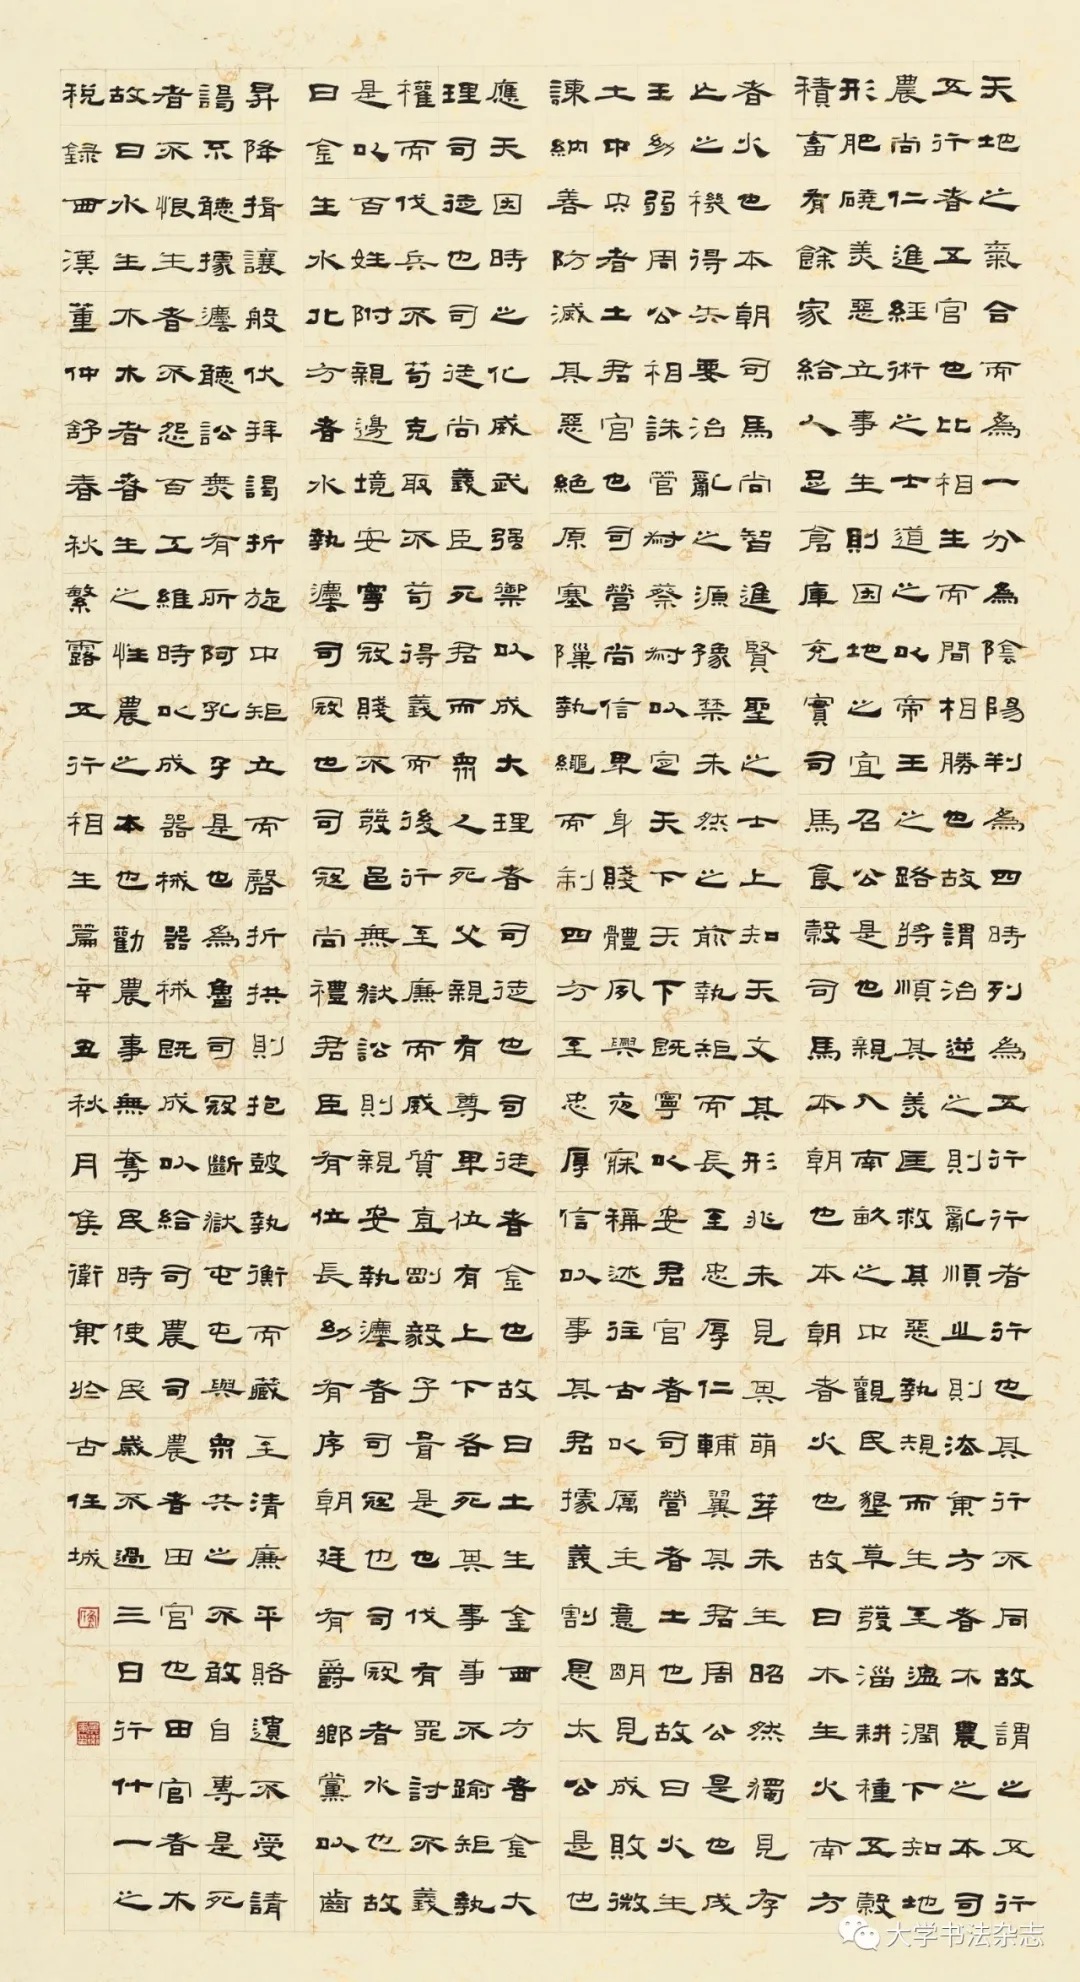 天地之氣合而為一分為陰陽判為四時列為五行行者行也其行不同故謂之五行
五行者五官也比相生而間相勝也故謂治逆之則亂順之則法東方者木農之本司
農尚仁進經術之士道之以帝王之路將順其美匡救其惡執規而生至溫潤下知地
形肥磽美惡立事生則因地之宜召公是也親入南畝之中觀民墾草發淄耕種五穀
積畜有餘家給人足倉庫充實司馬食穀司馬本朝也本朝者火也故曰木生火南方
者火也本朝司馬尚智進賢聖之士上知天文其形兆未見其萌芽未生昭然獨見存
亡之機得失要治亂之源豫禁未然之前執矩而長至忠厚仁輔翼其君周公是也成
王幼弱周公相誅管叔蔡叔以定天下天下既寧以安君官者司營者土也故曰火生
土中央者土君官也司營尚信卑身賤體夙興夜寐稱述往古以厲主意明見成敗微
諫納善防滅其惡絕原塞隟執繩而制四方至忠厚信以事其君據義割恩太公是也
應天因時之化威武强禦以成大理者司徒也司徒者金也故曰土生金西方者金大
理司徒也司徒尚義臣死君而衆人死父親有尊卑位有上下各死其事事不踰矩執
權而伐兵不苟克取不苟得義而後行至廉而威質直剛毅子胥是也伐有罪討不義
是以百姓附親邊境安寧寇賊不發邑無獄訟則親安執灋者司寇也司寇者水也故
曰金生水北方者水執灋司寇也司寇尚禮君臣有位長幼有序朝廷有爵鄉黨以齒
昇降揖讓般伏拜謁折旋中矩立而磬折拱則抱鼓執衡而藏至清廉平賂遺不受請
謁不聽據灋聽訟無有所阿孔子是也為魯司寇斷獄屯屯與衆共之不敢自專是死
者不恨生者不怨百工維時以成器械器械既成以給司農司農者田官也田官者木
故曰水生木木者春生之性農之本也勸農事無奪民時使民歲不過三日行什一之
稅錄西漢董仲舒春秋繁露五行相生篇辛丑秋月侯衛東於古任城
大学书法杂志